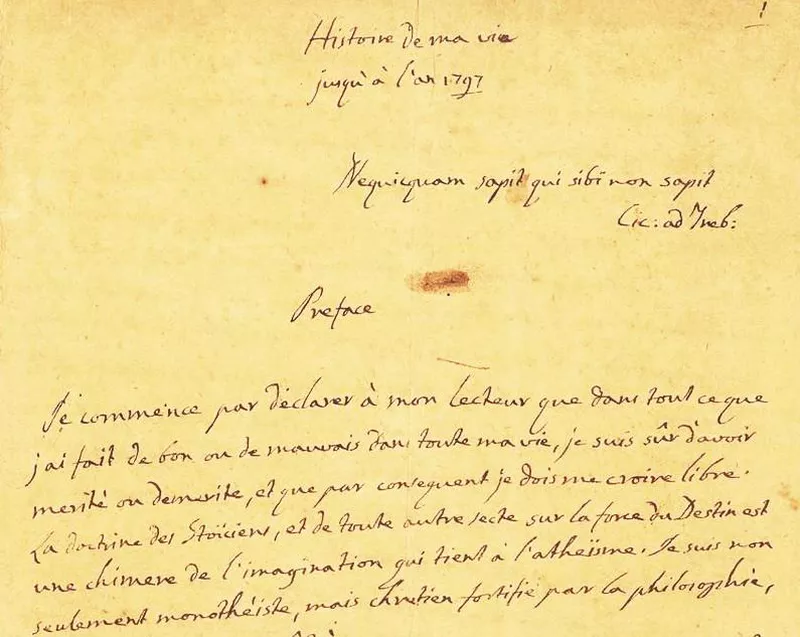 1
Histoire de ma vie
jusqu'à l'an 1797
Nequicquam sapit qui sibi non sapit
Cic: ad Treb:
Preface
Je commence par déclarer à mon lecteur que dans tout ce que
j'ai fait de bon ou de mauvais dans toute ma vie, je suis sûr d'avoir
merité ou demerité, et que par consequent je dois me croire libre.
La doctrine des Stoïciens, et de toute autre secte sur la force du Destin est
une chimere de l'imagination qui tient à l'athéïsme. Je suis non
seulement monothéiste, mais chretien fortifié par la philosophie,